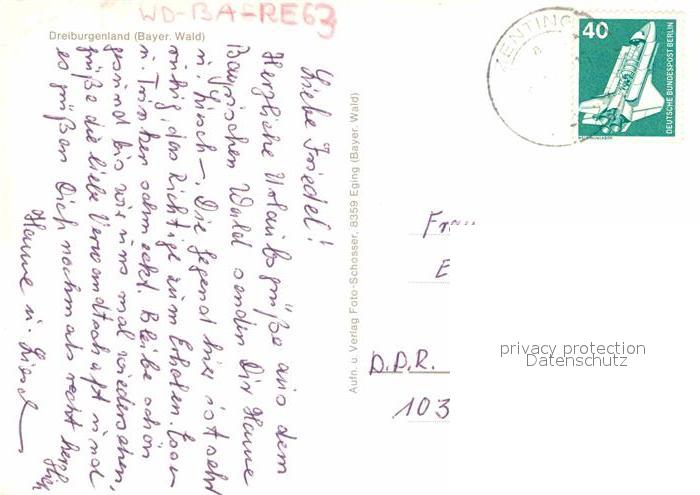 WD-BA-RE63
Dreiburgenland (Bayer. Wald)
Liebe Friedel!
Herzliche Urlaubsgrüße aus dem
Bayrischen Wald senden Dir Hanne
u. Die Gegend hier ist sehr
ruhig, das Richtige zum Erholen. Essen
u. Trinken schmeckt. Bleibe schön
gesund bis wir uns mal wiedersehen,
grüße die liebe Verwandtschaft und
es grüßen Dich nochmals recht herzl
Hanne u.
Aufn. u. Verlag Foto-Schosser, 8359 Eging (Bayer. Wald)
ENTING
40
DEUTSCHE BUNDESPOST BERLIN
E
D.D.R.
103
privacy protection
Datenschutz